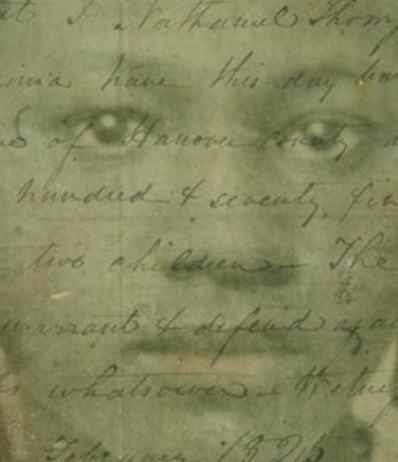 I Nathaniel Thom
inia have this day
of Hanover county
hundred & seventy fiv
two children — The
warrant & defend aga
whatsoever — Witne
February 1826